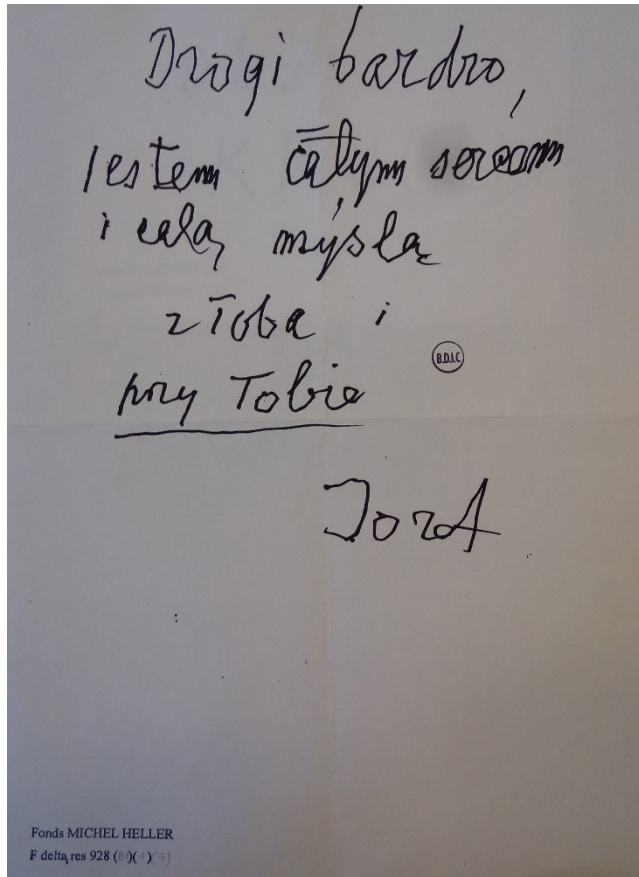 Drogi bardzo,
Jestem całym sercem
i całą myślą
z Tobą i
przy Tobie
B.D.I.C
Józef
Fonds MICHEL HELLER
F delta res 928